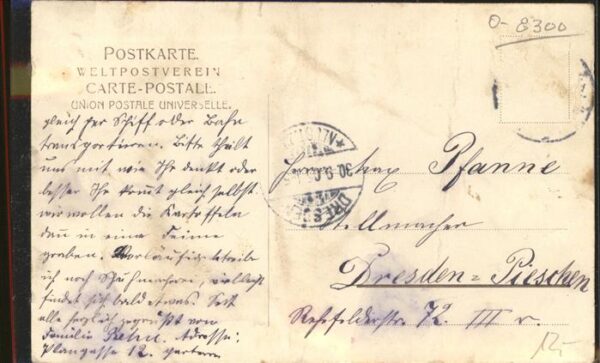 0-8300
POSTKARTE.
WELTPOSTVEREIN
CARTE-POSTALE.
UNION POSTALE UNIVERSELLE.
gleich per Schiff oder Bahn
transportieren. Bitte schreibt
uns mit wie Ihr denkt oder
besser Ihr kommt gleich selbst
wir wollen die Kartoffeln
dan in eine Feime
graben. Vorläufig
ich noch vielleicht
findet sich bald etwas. Seit
alle herzlich gegrüßt von
Familie Adresse:
Plangasse 12.
30.9.0
DRESDEN
Herrn Max Pfanne
Stellmacher
Dresden-Pieschen
Rehefelderstr. 72 III r.
12,-